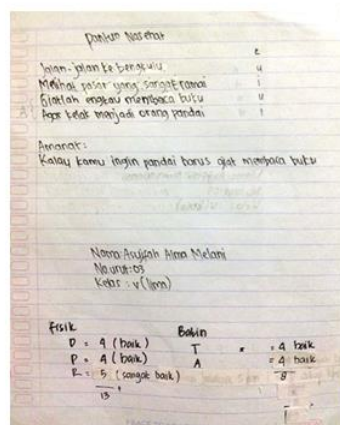 Pantun Nasehat
Jalan-jalan ke bengkulu u
Melihat pasar yang sangat ramai i
Giatlah engkau membaca buku u
Agar kelak menjadi orang pandai i
Amanat:
Kalau kamu ingin pandai harus giat membaca buku
Nama:
Alma Melani
No.urut:03
Kelas: V (lima)
Fisik Batin
D = 4 (baik) T = 4 baik
P = 4 (baik) A = 4 baik
R = 5 (sangat baik) 8
13